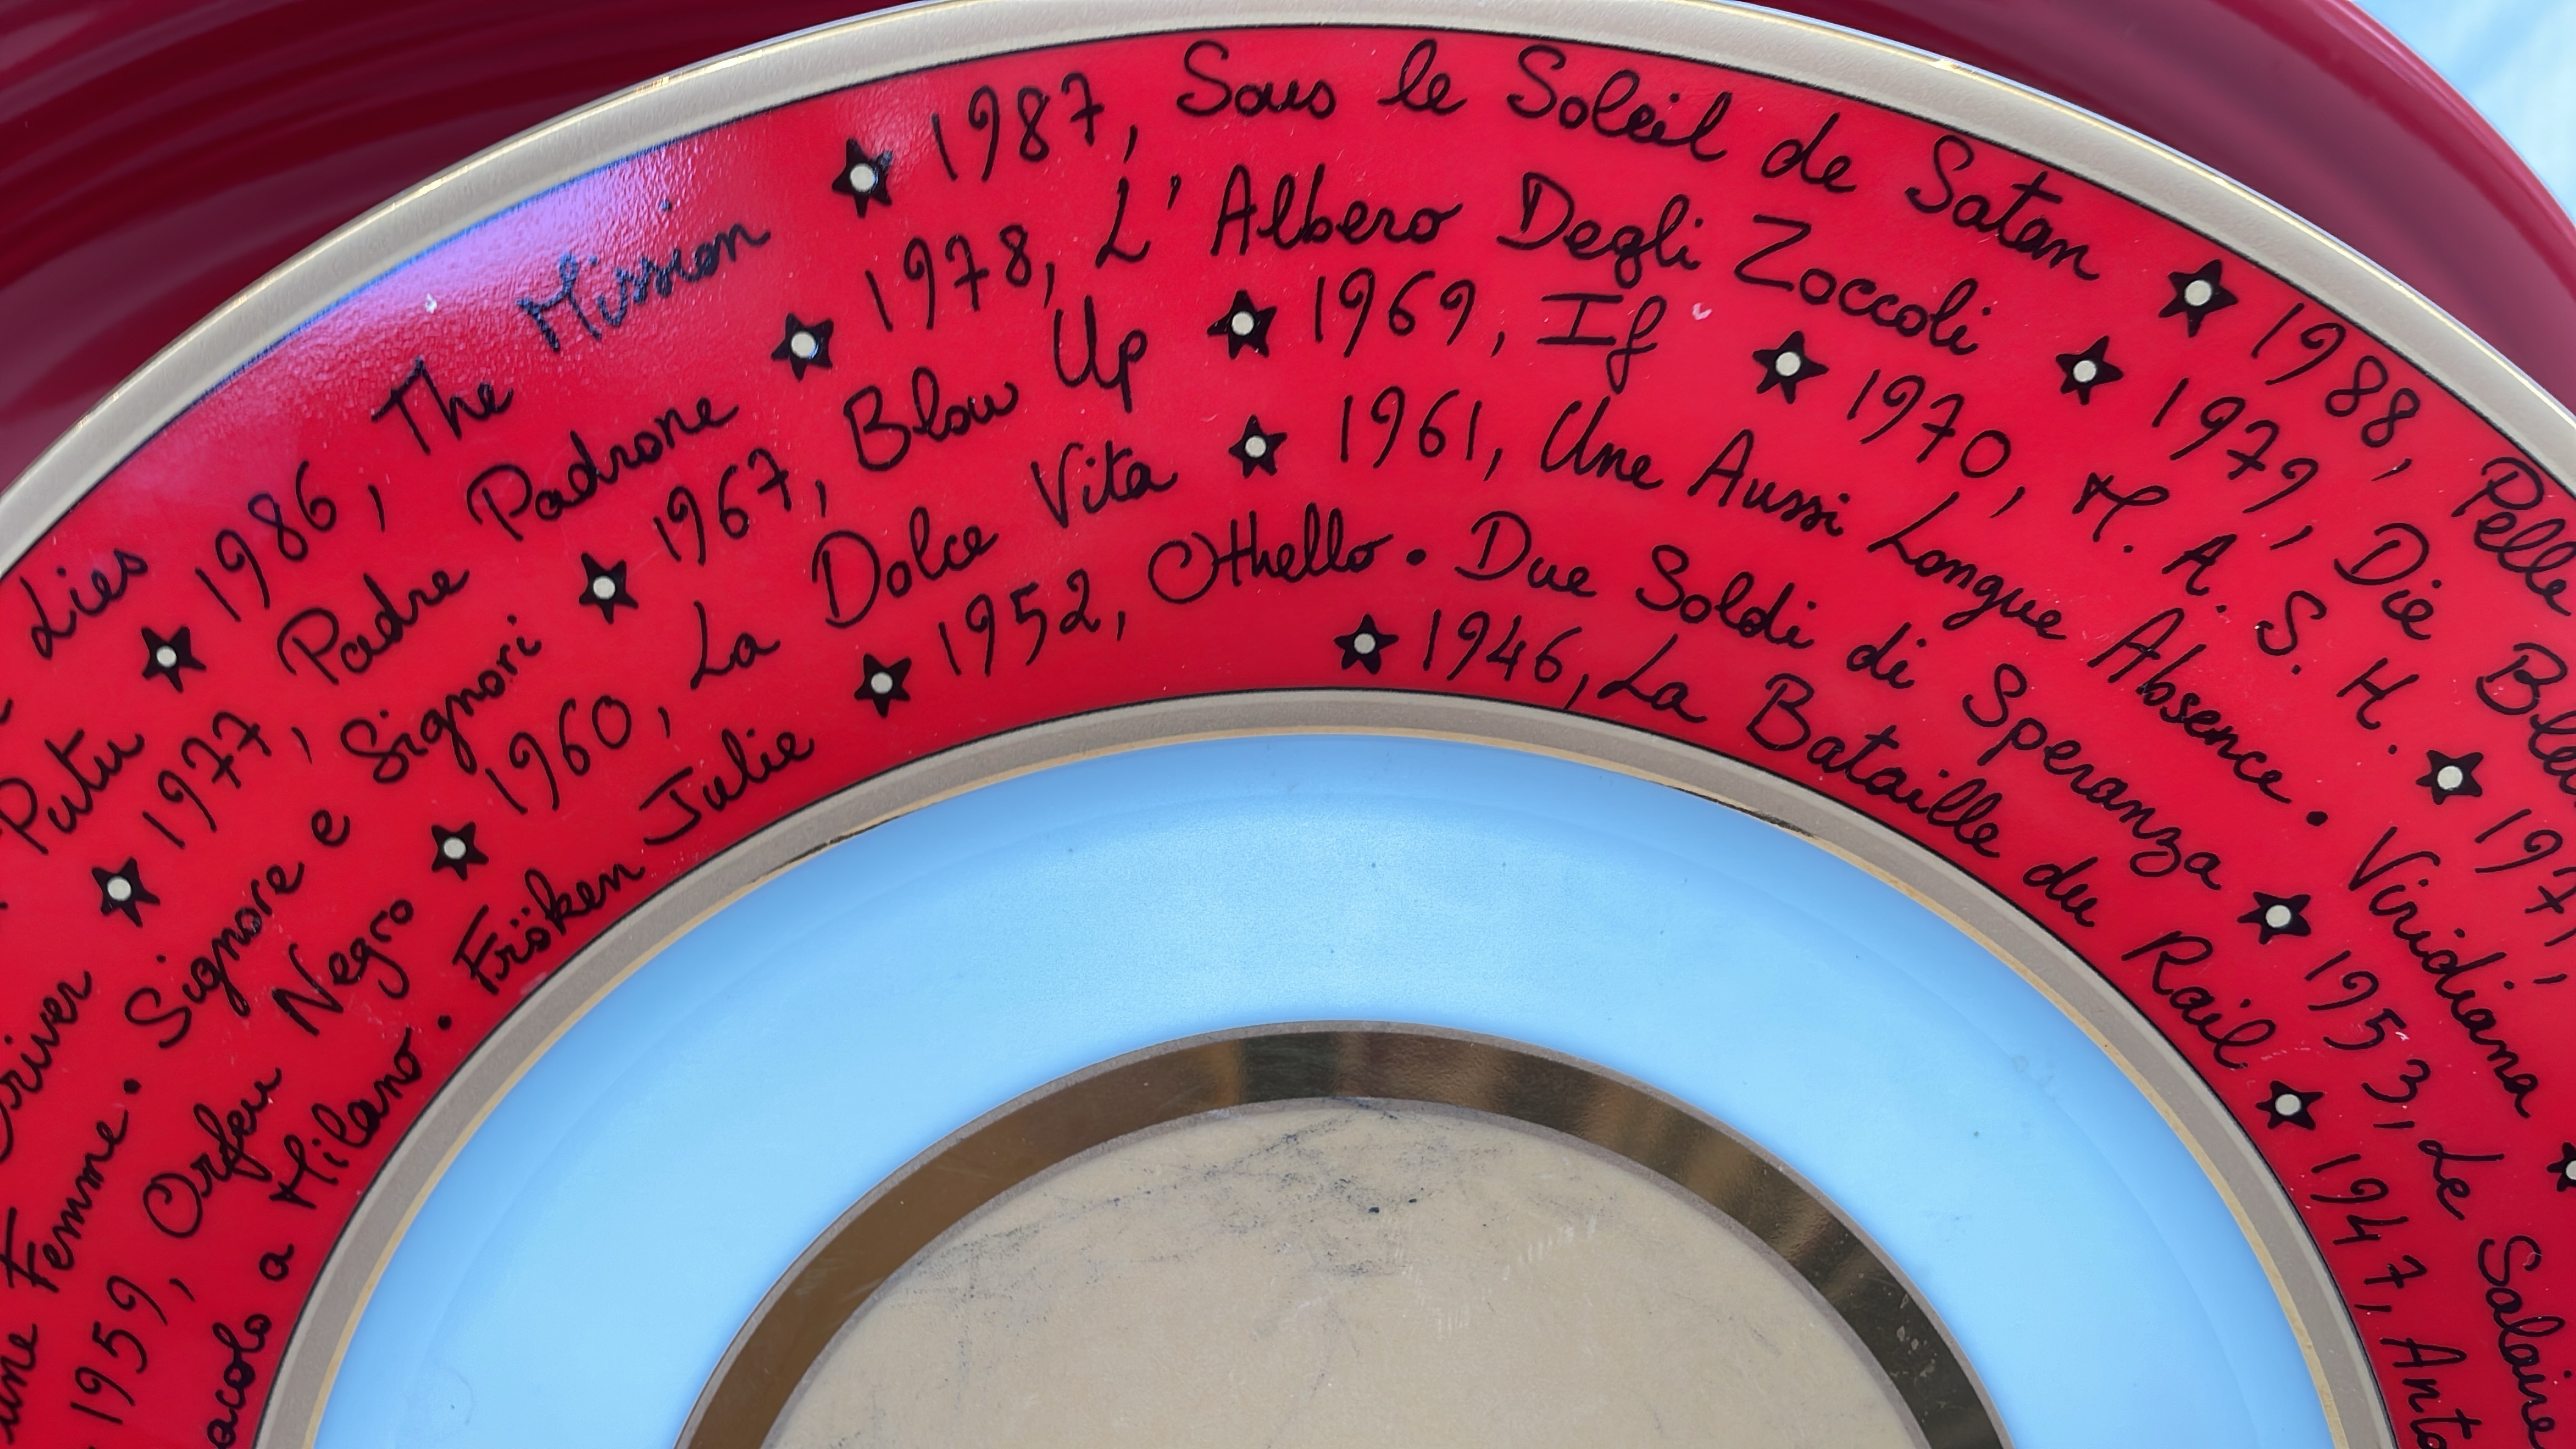 Lies ★ 1986, The Mission ★ 1987, Sous le Soleil de Satan ★ 1988, Pelle
Putu ★ 1977, Padre Padrone ★ 1978, L'Albero Degli Zoccoli ★ 1979, Die
Driver ★ Signore e Signori ★ 1967, Blow Up ★ 1969, If ★ 1970, M. A. S. H. ★
une Femme. Signore e Signori
1959, Orfeu Negro ★ 1960, La Dolce Vita ★ 1961, Une Aussi Longue Absence. Viridiana
a Milano. Fröken Julie ★ 1952, Othello. Due Soldi di Speranza ★ 1953, Le Salaire
★ 1946, La Bataille du Rail ★ 1947,